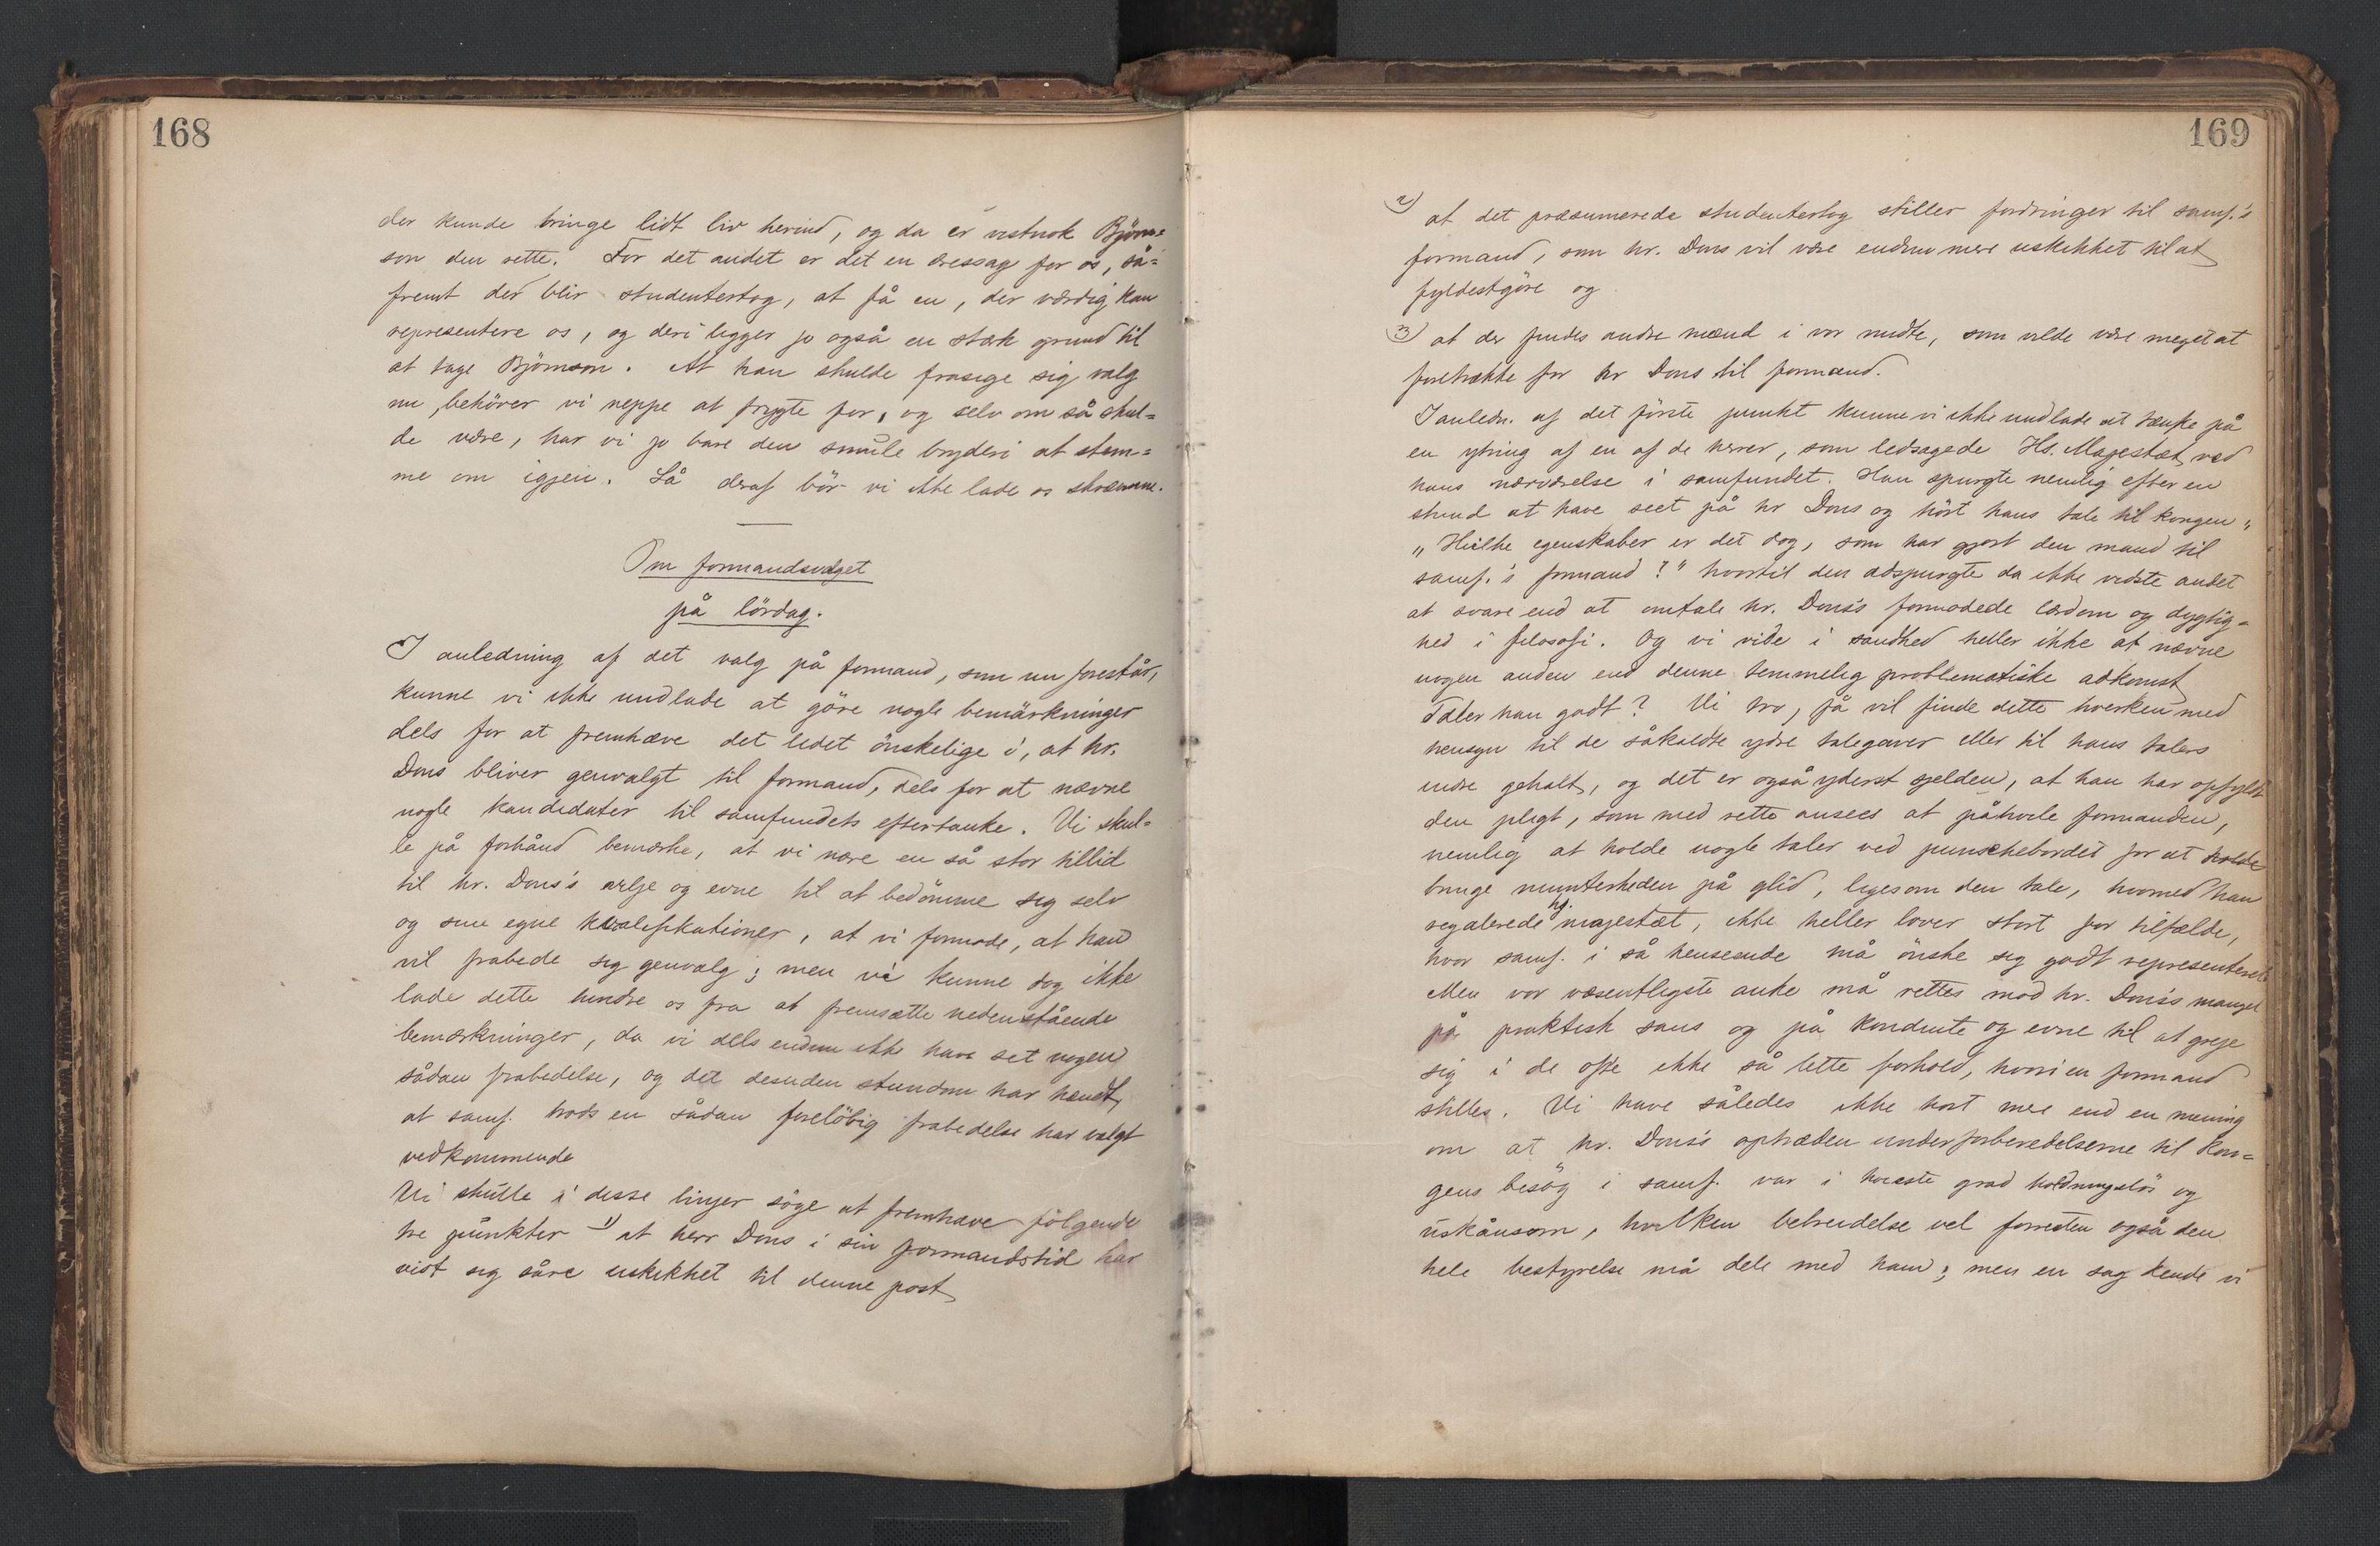 168
der kunde bringe lidt liv herind, og da er vistnok Björn-
son den rette. For det andet er det en æressag for os, så=
fremt der blir studentertog, at få en, der værdig kan
representere os, og deri ligger jo også en stærk grund til
at tage Björnson. At han skulde frasige sig valg
nu, behöver vi neppe at frygte for, og selv om så skul=
de være, har vi jo bare den smule bryderi at stem=
me om igjen. Så deraf bör vi ikke lade os skræmme.
Om formandsvalget
på lördag.
I anledning af det valg på formand, som nu forestår,
kunne vi ikke undlade at göre nogle bemärkninger
dels for at fremhæve det lidet önskelige i, at hr.
Dons bliver genvalgt til formand, dels for at nævne
nogle kandidater til samfundets eftertanke. Vi skul=
le på forhånd bemærke, at vi nære en så stor tillid
til hr. Dons's ærlje og evne til at bedömme sig selv
og sine egne kvalifikationer, at vi formode, at han
vil frabede sig genvalg; men vi kunne dog ikke
lade dette hindre os fra at fremsætte nedenstående
bemærkninger, da vi dels endnu ikke have set nogen
sådan frabedelse, og det desuden stundom har hændt,
at samf. trods en sådan foreløbig frabedelse har valgt
vedkommende
Vi skulle i disse linjer söge at fremhæve fölgende
tre punkter 1) at herr Dons i sin formandstid har
vist sig såre uskikket til denne post
169
2) at det præsumerede studentertog stiller fordringer til samf.'s
formand, som hr. Dons vil være endnu mere uskikket til at
fyldestgöre og
3) at der findes andre mænd i vor midte, som vilde være meget at
foretrække for hr Dons til formand.
I anledn. af det förste punkt kunne vi ikke undlade at tænke på
en ytring af en af de herrer, som ledsagede Hs. Majestæt ved
hans nærværelse i samfundet. Han spurgte nemlig efter en
stund at have seet på hr Dons og hört hans tale til kongen "
"Hvilke egenskaber er det dog, som har gjort den mand til
samf.'s formand?" hvortil den adspurgte da ikke vidste andet
at svare end at omtale hr. Dons's formodede lærdom og dygtig=
hed i filosofi. Og vi vide i sandhed heller ikke at nævne
nogen anden end denne temmelig problematiske adkomst
Taler han godt? Vi tro, få vil finde dette hverken med
hensyn til de såkaldte ydre talegaver eller til hans talers
indre gehalt, og det er også yderst sjelden, at han har opfyldt
den pligt, som med rette ansees at påhvile formanden,
nemlig at holde nogle taler ved punschebordet for at holde
bringe munterheden på glid, ligesom den tale, hvormed han
regalerede hs. majestæt, ikke heller lover stort for tilfælde,
hvor samf. i så henseende må önske sig godt representeret
Men vor væsentligste anke må rettes mod hr. Dons's mangel
på praktisk sans og på konduite og evne til at greje
sig i de ofte ikke så lette forhold, hvori en formand
stilles. Vi have således ikke hört mer end en mening
om at hr. Dons's optræden under forberedelserne til kon=
gens besög i samf. var i höieste grad holdningslös og
uskånsom, hvilken bebreidelse vel forresten også den
hele bestyrelse må dele med ham; men en sag kende vi